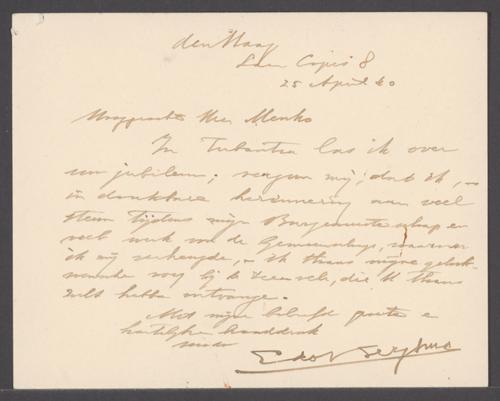 den Haag
Laan Copes 8
25 April 40
Hooggeachte Heer Menko
In Tubantia las ik over
uw jubileum; vergun mij, dat ik, –
in dankbare herinnering aan veel
steun tijdens mijn Burgemeesterschap en
veel werk van de Gemeenschap, waarover
ik mij verheugde, – ik thans mijne geluk-
wensch nog bij de vele, die U thans
zult hebben ontvangen.
Met mijn beleefde groeten en
hartelijke handdruk